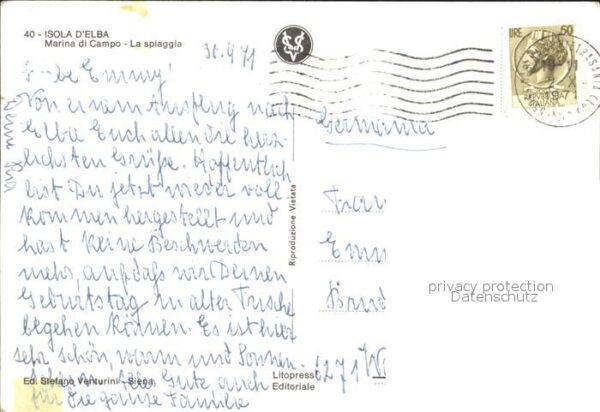 40 - ISOLA D'ELBA
Marina di Campo - La spiaggia
30.9.71
LIRE 50
Liebe Emmy!
Von einem Ausflug nach
Elba Euch allen die herz
lichsten Grüße. Hoffentlich
bist Du jetzt wieder voll
kommen hergestellt und
hast keine Beschwerden
mehr, auf daß wir Deinen
Geburtstag in alter Frische
begehen können. Es ist hier
sehr schön, warm und Sonnen-
Alles Gute auch
für die ganze Familie
Germania
Frau
Emm
6271 W
Riproduzione Vietata
privacy protection
Datenschutz
Ed. Stefano Venturini - Siena
Litopress
Editoriale